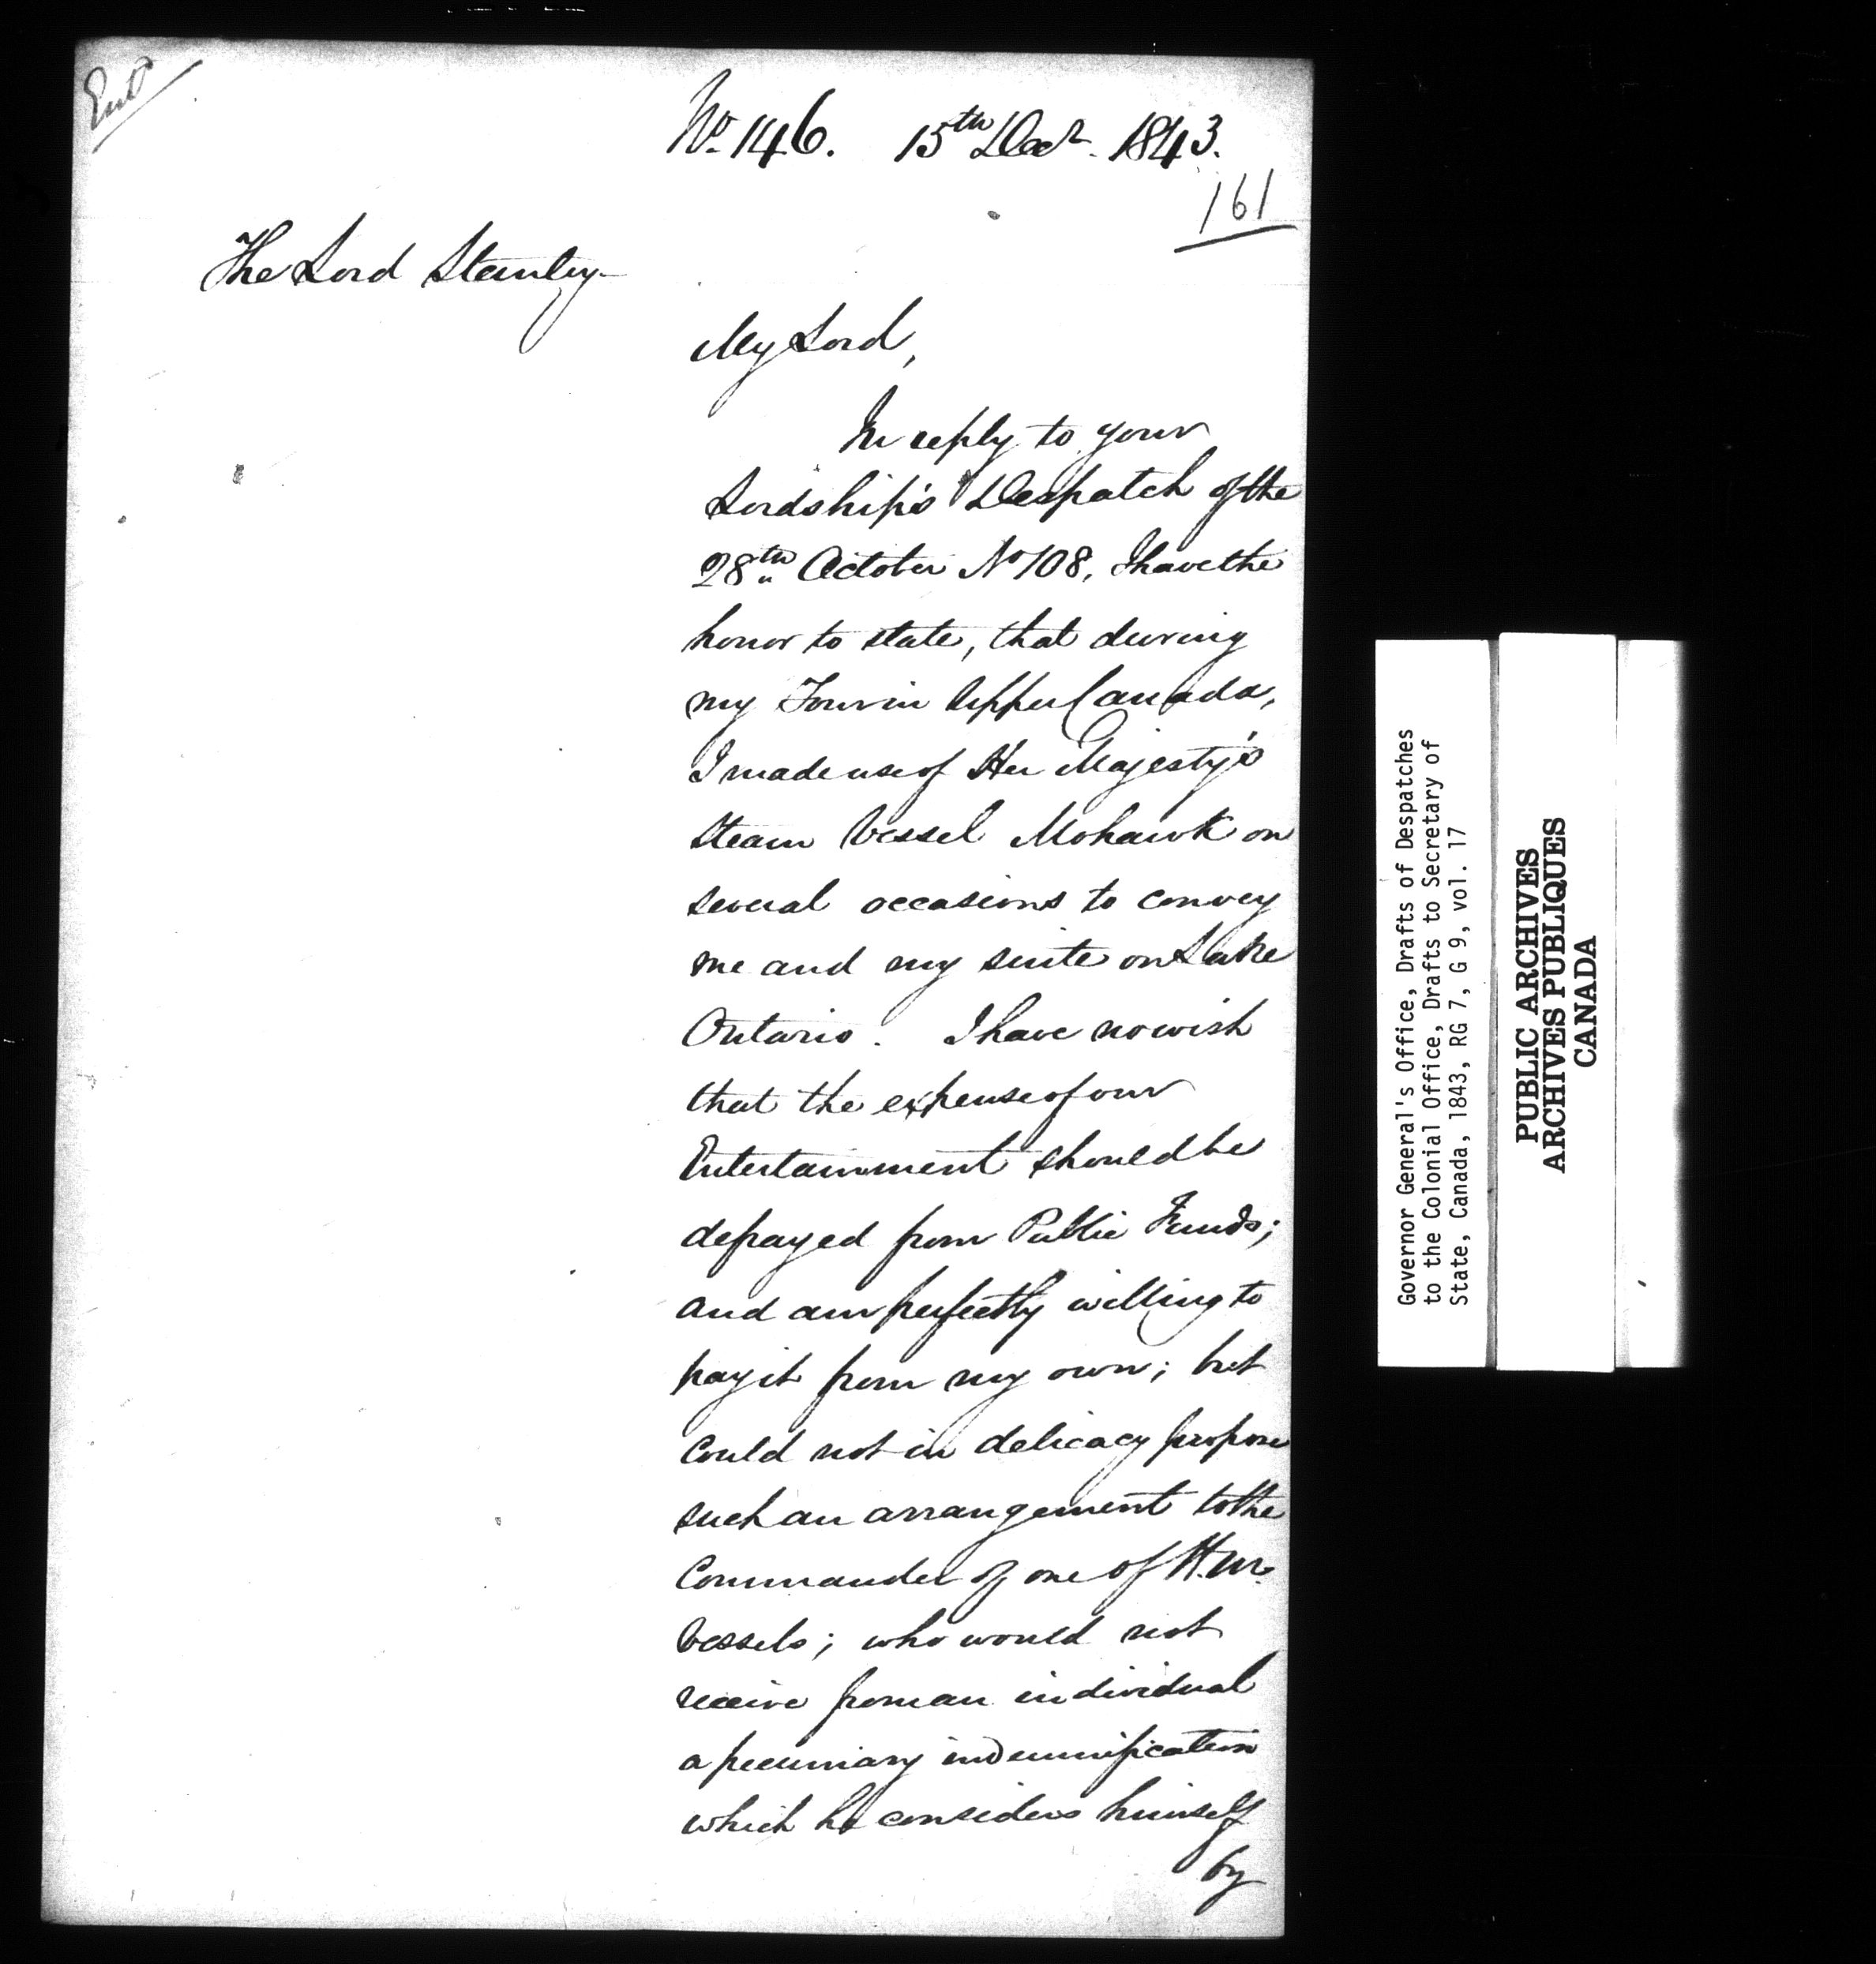 Entd
No. 146. 15th Decr. 1843.
161
The Lord Stanley
My Lord,
In reply to your
Lordship's Despatch of the
28th October No 108, I have the
honor to state, that during
my Tour in Upper Canada,
I made use of Her Majesty's
Steam Vessel Mohawk on
several occasions to convey
me and my suite on Lake
Ontario. I have no wish
that the expense of our
Entertainment should be
defrayed from Public Funds;
and am perfectly willing to
pay it from my own; but
could not in delicacy propose
such an arrangement to the
Commander of one of H.M.
Vessels; who would not
receive from an individual
a pecuniary indemnification
which he considers himself
by
Governor General's Office, Drafts of Despatches
to the Colonial Office, Drafts to Secretary of
State, Canada, 1843, RG 7, G 9, vol. 17
PUBLIC ARCHIVES
ARCHIVES PUBLIQUES
CANADA